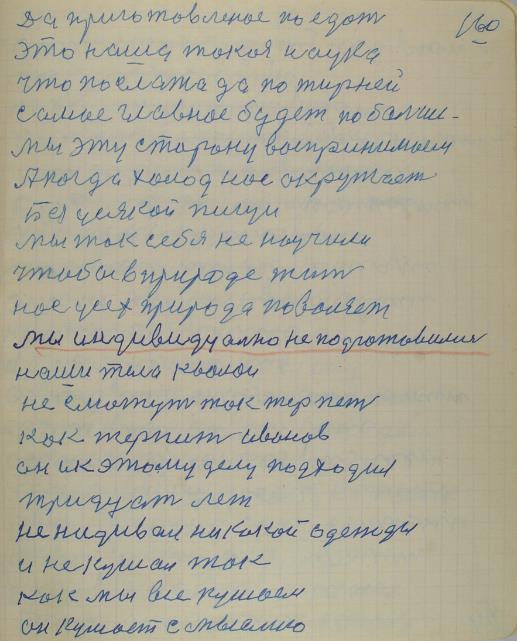 160
Да приготовленое поедат
это наша такая наука
что послажа да по жирней
самае главное будет по балши-
мы эту сторону воспринимаем
А когда холод нас окружает
Без усякой пищи
мы так себя не научили
чтобы в природе жит
нас усех природа поваляет
мы индивидуално не подготовилис
наши тела к воли
не сможут так терпет
как терпит иванов
он и к этому делу подходил
тридцат лет
не надивал никакой одежди
и не кушал так
как мы все кушаем
он кушает смыслино